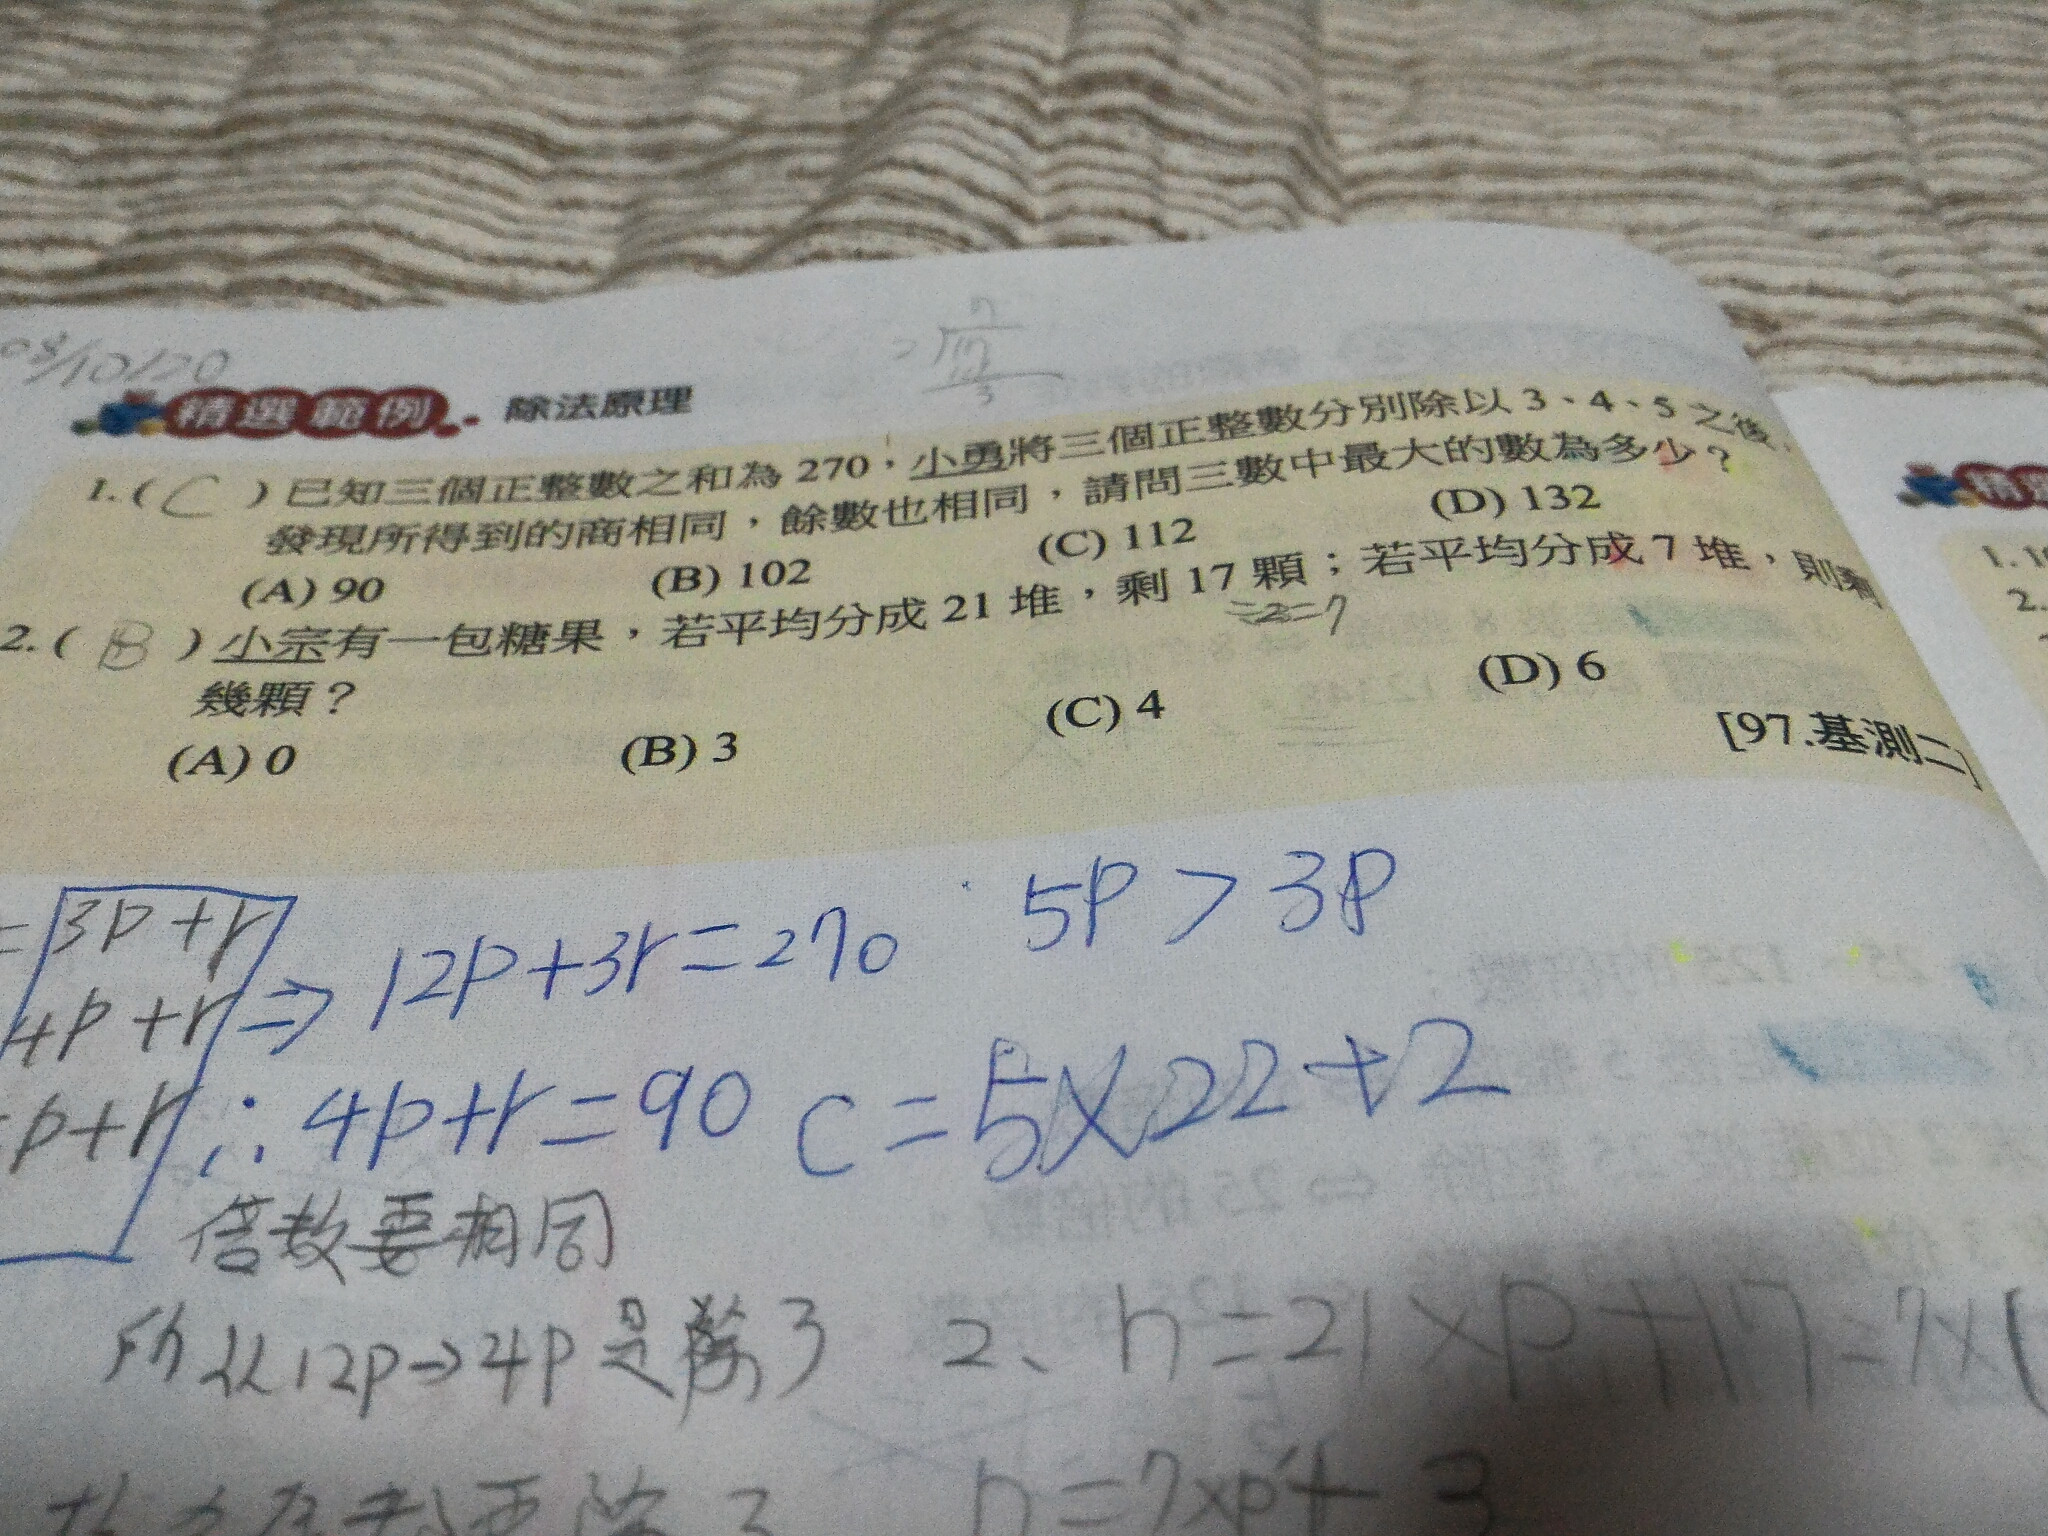 08/10/20
精選範例 除法原理
1.( C ) 已知三個正整數之和為 270，小勇將三個正整數分別除以 3、4、5 之後，
發現所得到的商相同，餘數也相同，請問三數中最大的數為多少？
(A) 90 (B) 102 (C) 112 (D) 132
2.( B ) 小宗有一包糖果，若平均分成 21 堆，剩 17 顆；若平均分成 7 堆，則剩
幾顆？
(A) 0 (B) 3 (C) 4 (D) 6
[97.基測二]
=3p+r
4p+r ⇒ 12p+3r=270 5p > 3p
p+r ∴ 4p+r=90 c=5×22+2
倍數要相同
所以12p→4p是除3
2、n=21×p+17=7×(
n=7×p'+3
精選
1.
2.